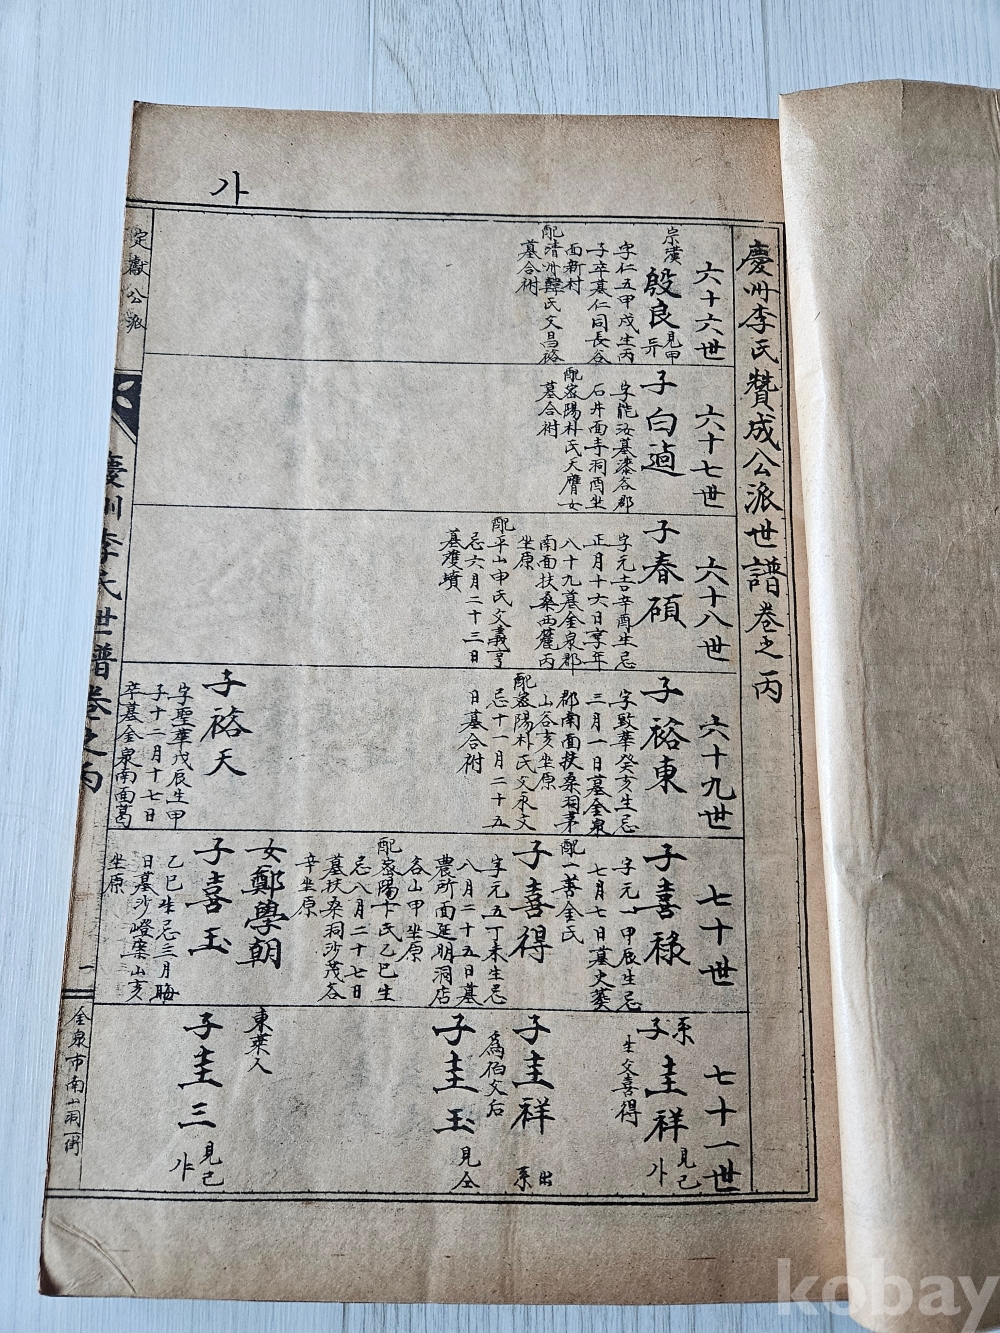 가
慶州李氏贊成公派世譜卷之丙
六十六世
宗漢
殷良
見甲
字仁五甲戌生丙
子卒墓仁同長谷
面新村
配清州韓氏父昌裕
墓合祔
六十七世
子白逈
字能汝墓漆谷郡
石井面寺洞酉坐
配密陽朴氏天膺女
墓合祔
六十八世
子春碩
字元吉辛酉生忌
正月十六日享年
八十九墓金泉郡
南面扶桑西麓丙
坐原
配平山申氏父義亨
忌六月二十三日
墓雙墳
六十九世
子裕東
字致華癸亥生忌
三月一日墓金泉
郡南面扶桑洞茅
山谷亥坐原
配密陽朴氏父永文
忌十一月二十五
日墓合祔
子裕天
字聖華戊辰生甲
子十二月十七日
卒墓金泉南面葛
七十世
子喜祿
字元一甲辰生忌
七月七日墓火葬
配一善金氏
子喜得
字元五丁未生忌
八月二十五日墓
農所面延明洞店
谷山甲坐原
配密陽卞氏乙巳生
忌八月二十七日
墓扶桑洞沙茂谷
辛坐原
女鄭學朝
子喜玉
乙巳生忌三月晦
日墓沙嶝案山亥
坐原
七十一世
系子圭祥
生父喜得
見己
가
子圭祥
爲伯父后
出系
子圭玉
見仝
東萊人
子圭三
見己
定獻公派
慶州李氏世譜卷之丙
一